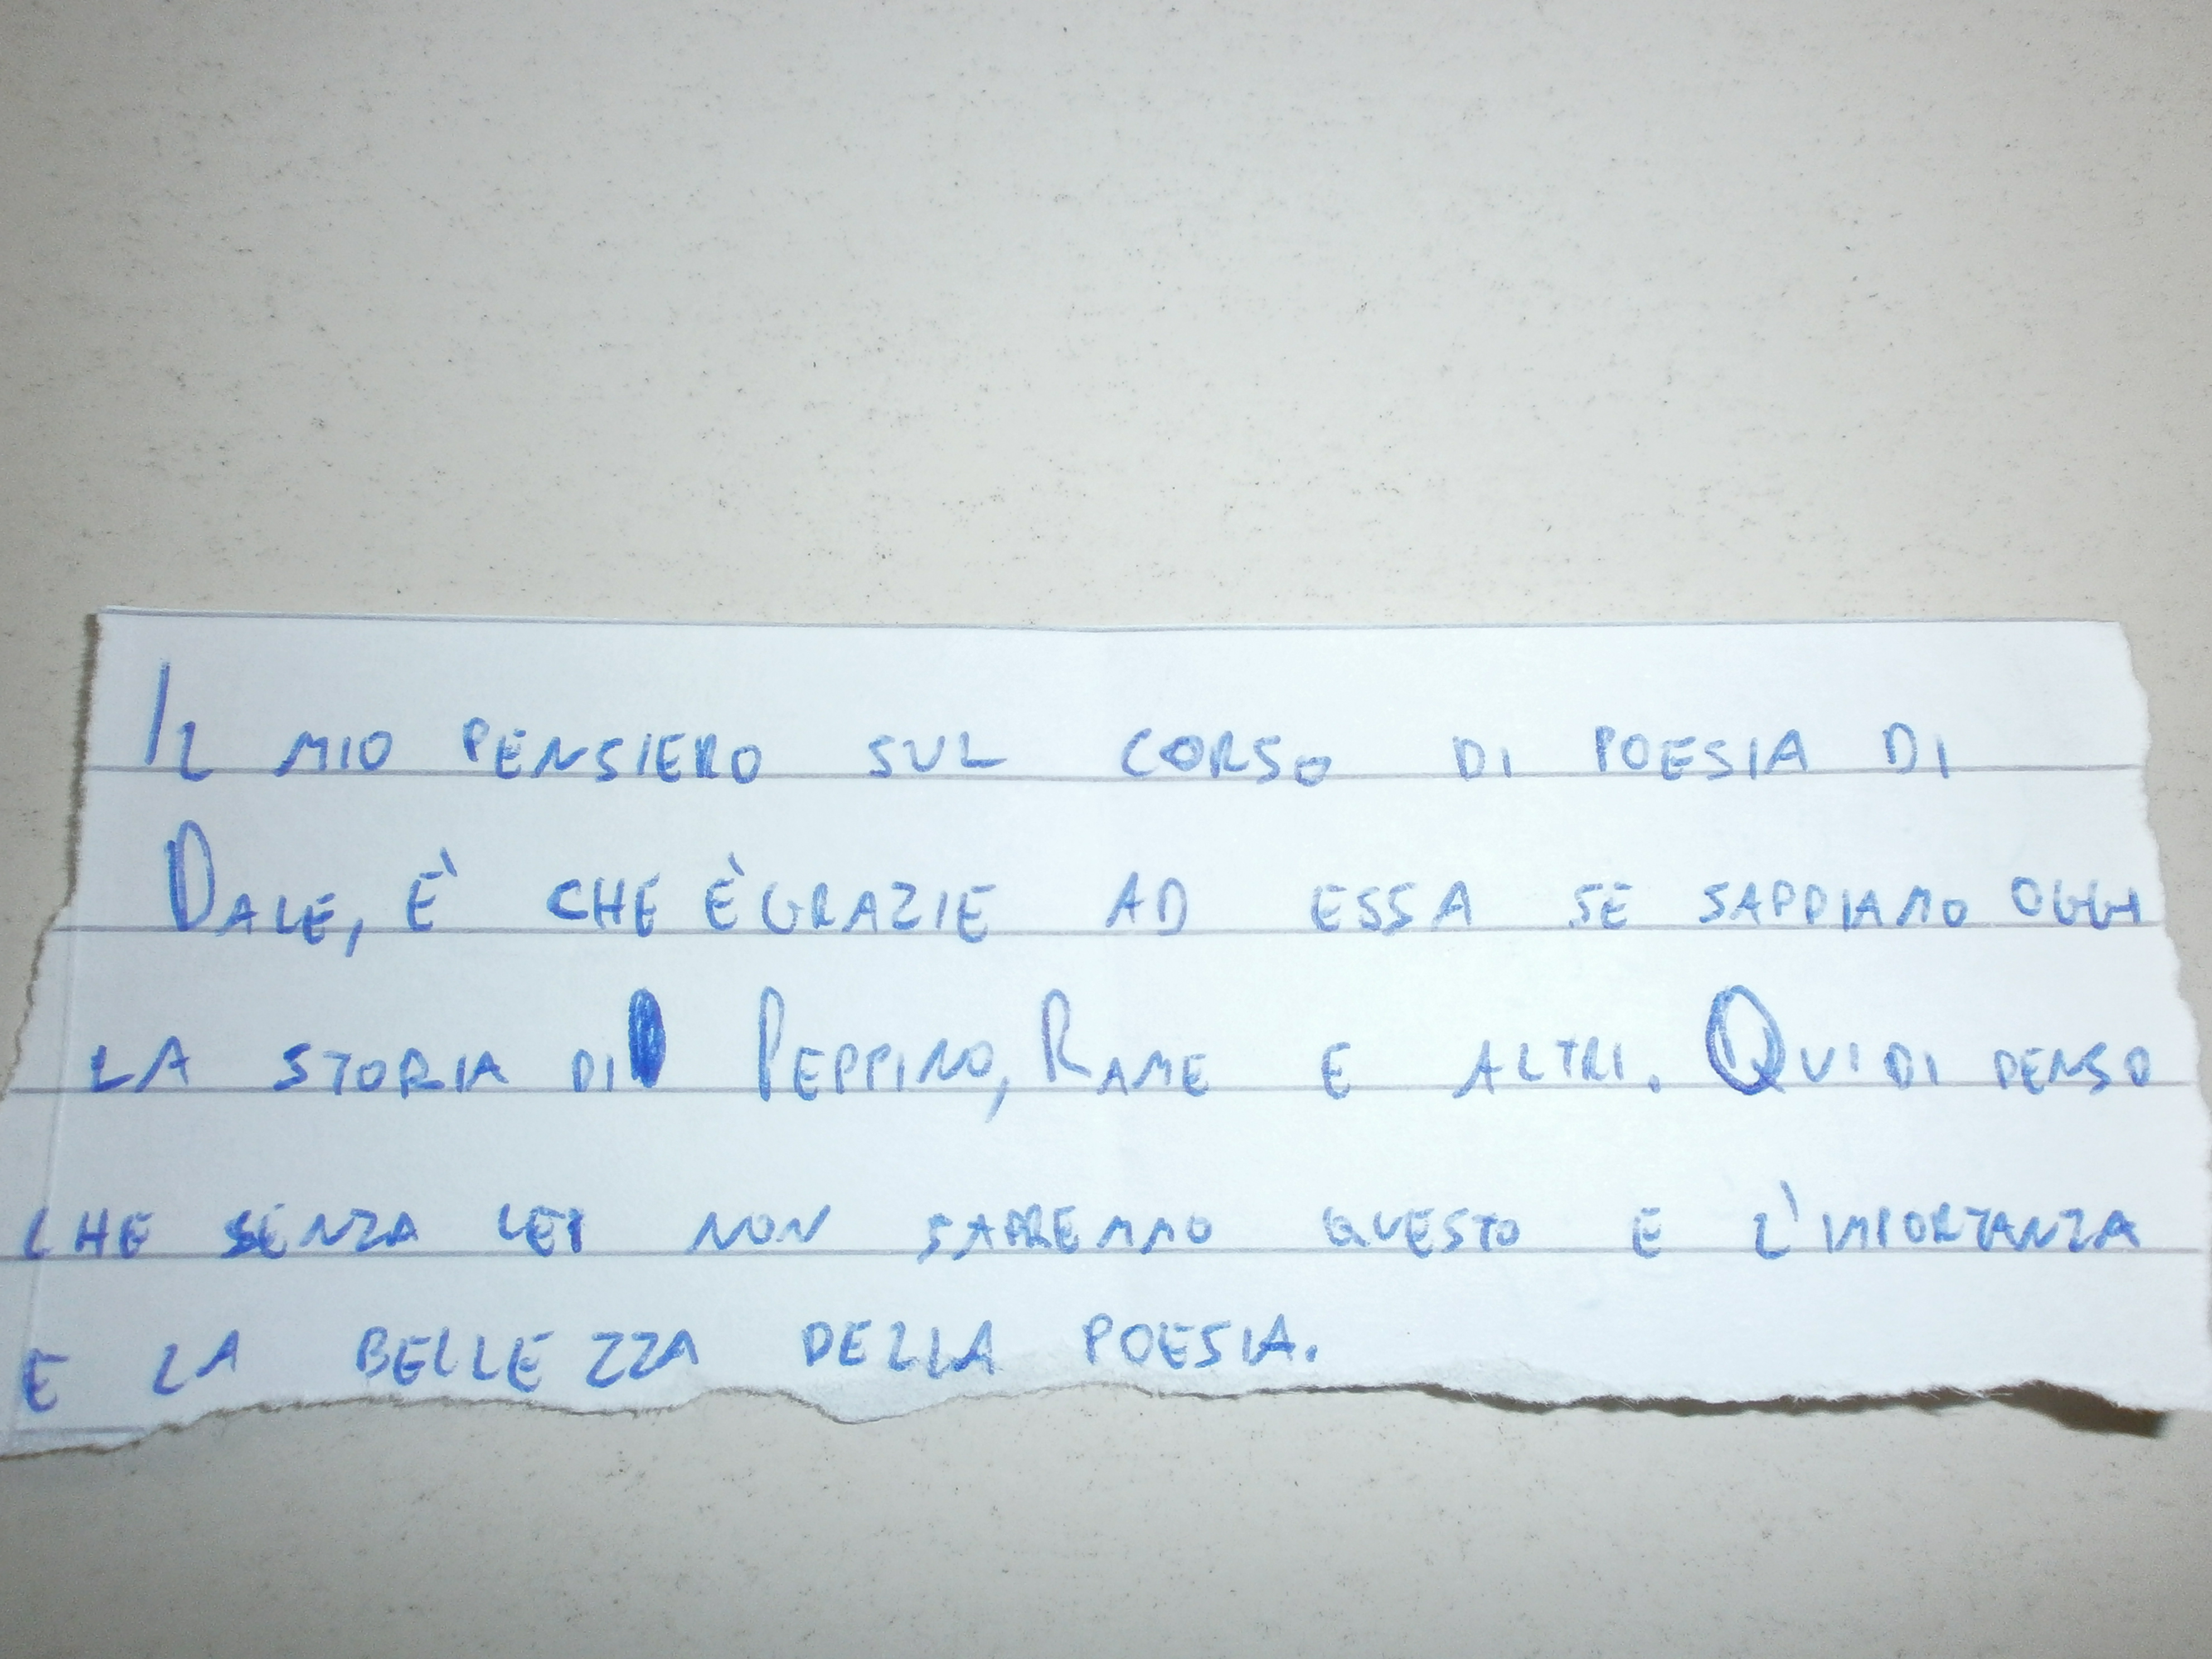 Il mio pensiero sul corso di poesia di
Dale, è che è grazie ad essa se sappiamo oggi
la storia di Peppino, Rame e altri. Quidi penso
che senza lei non sapremmo questo e l'importanza
e la bellezza della poesia.